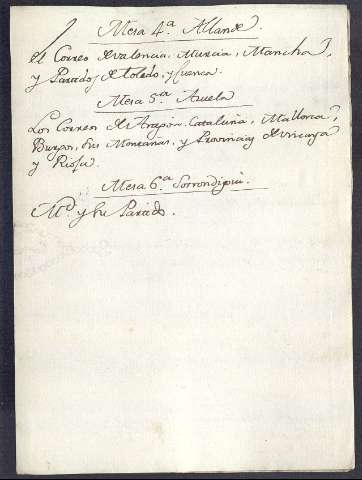 Mesa 4.ª Allande
el Correo de Valencia, Murcia, Mancha,
y Partido de Toledo, y Cuenca.
Mesa 5.ª Azuela
Los Correos de Aragon, Cataluña, Mallorca,
Burgos, sus Montañas, y Provincias de Vizcaya
y Rioja.
Mesa 6.ª
M.d y su Partido.